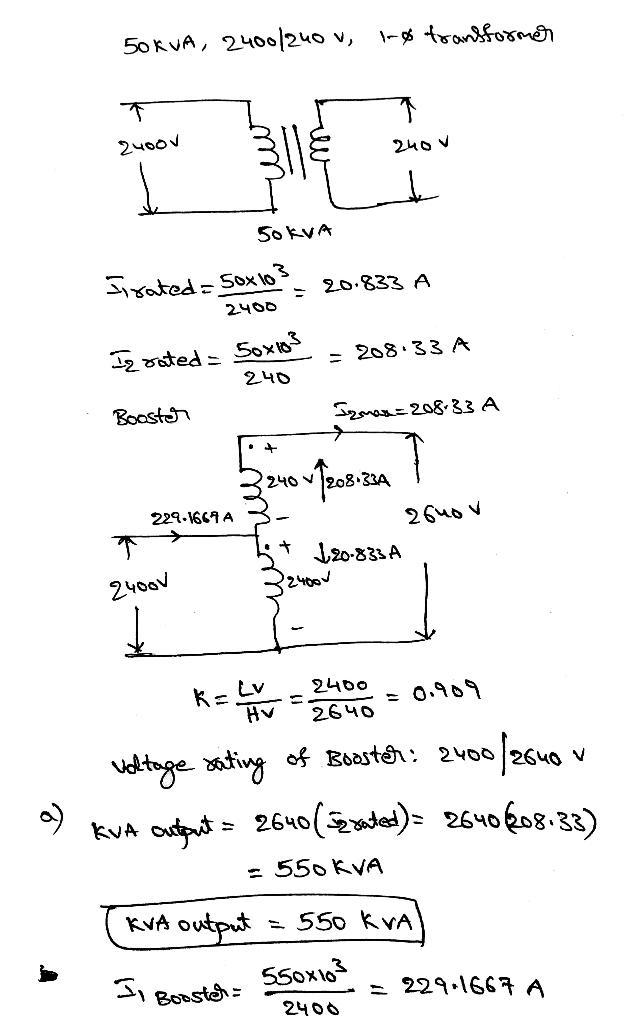 50KVA, 2400/240 V, 1-ø transformer
2400V
240 V
50KVA
I1 rated = 50x10³/2400 = 20.833 A
I2 rated = 50x10³/240 = 208.33 A
Booster
I2max = 208.33 A
+
240 V
208.33A
229.1667 A
-
2640 V
+
20.833A
2400V
2400V
-
K = LV/HV = 2400/2640 = 0.909
Voltage rating of Booster: 2400/2640 V
a) KVA output = 2640(I2 rated) = 2640(208.33)
= 550 KVA
KVA output = 550 KVA
I1 Booster = 550x10³/2400 = 229.1667 A